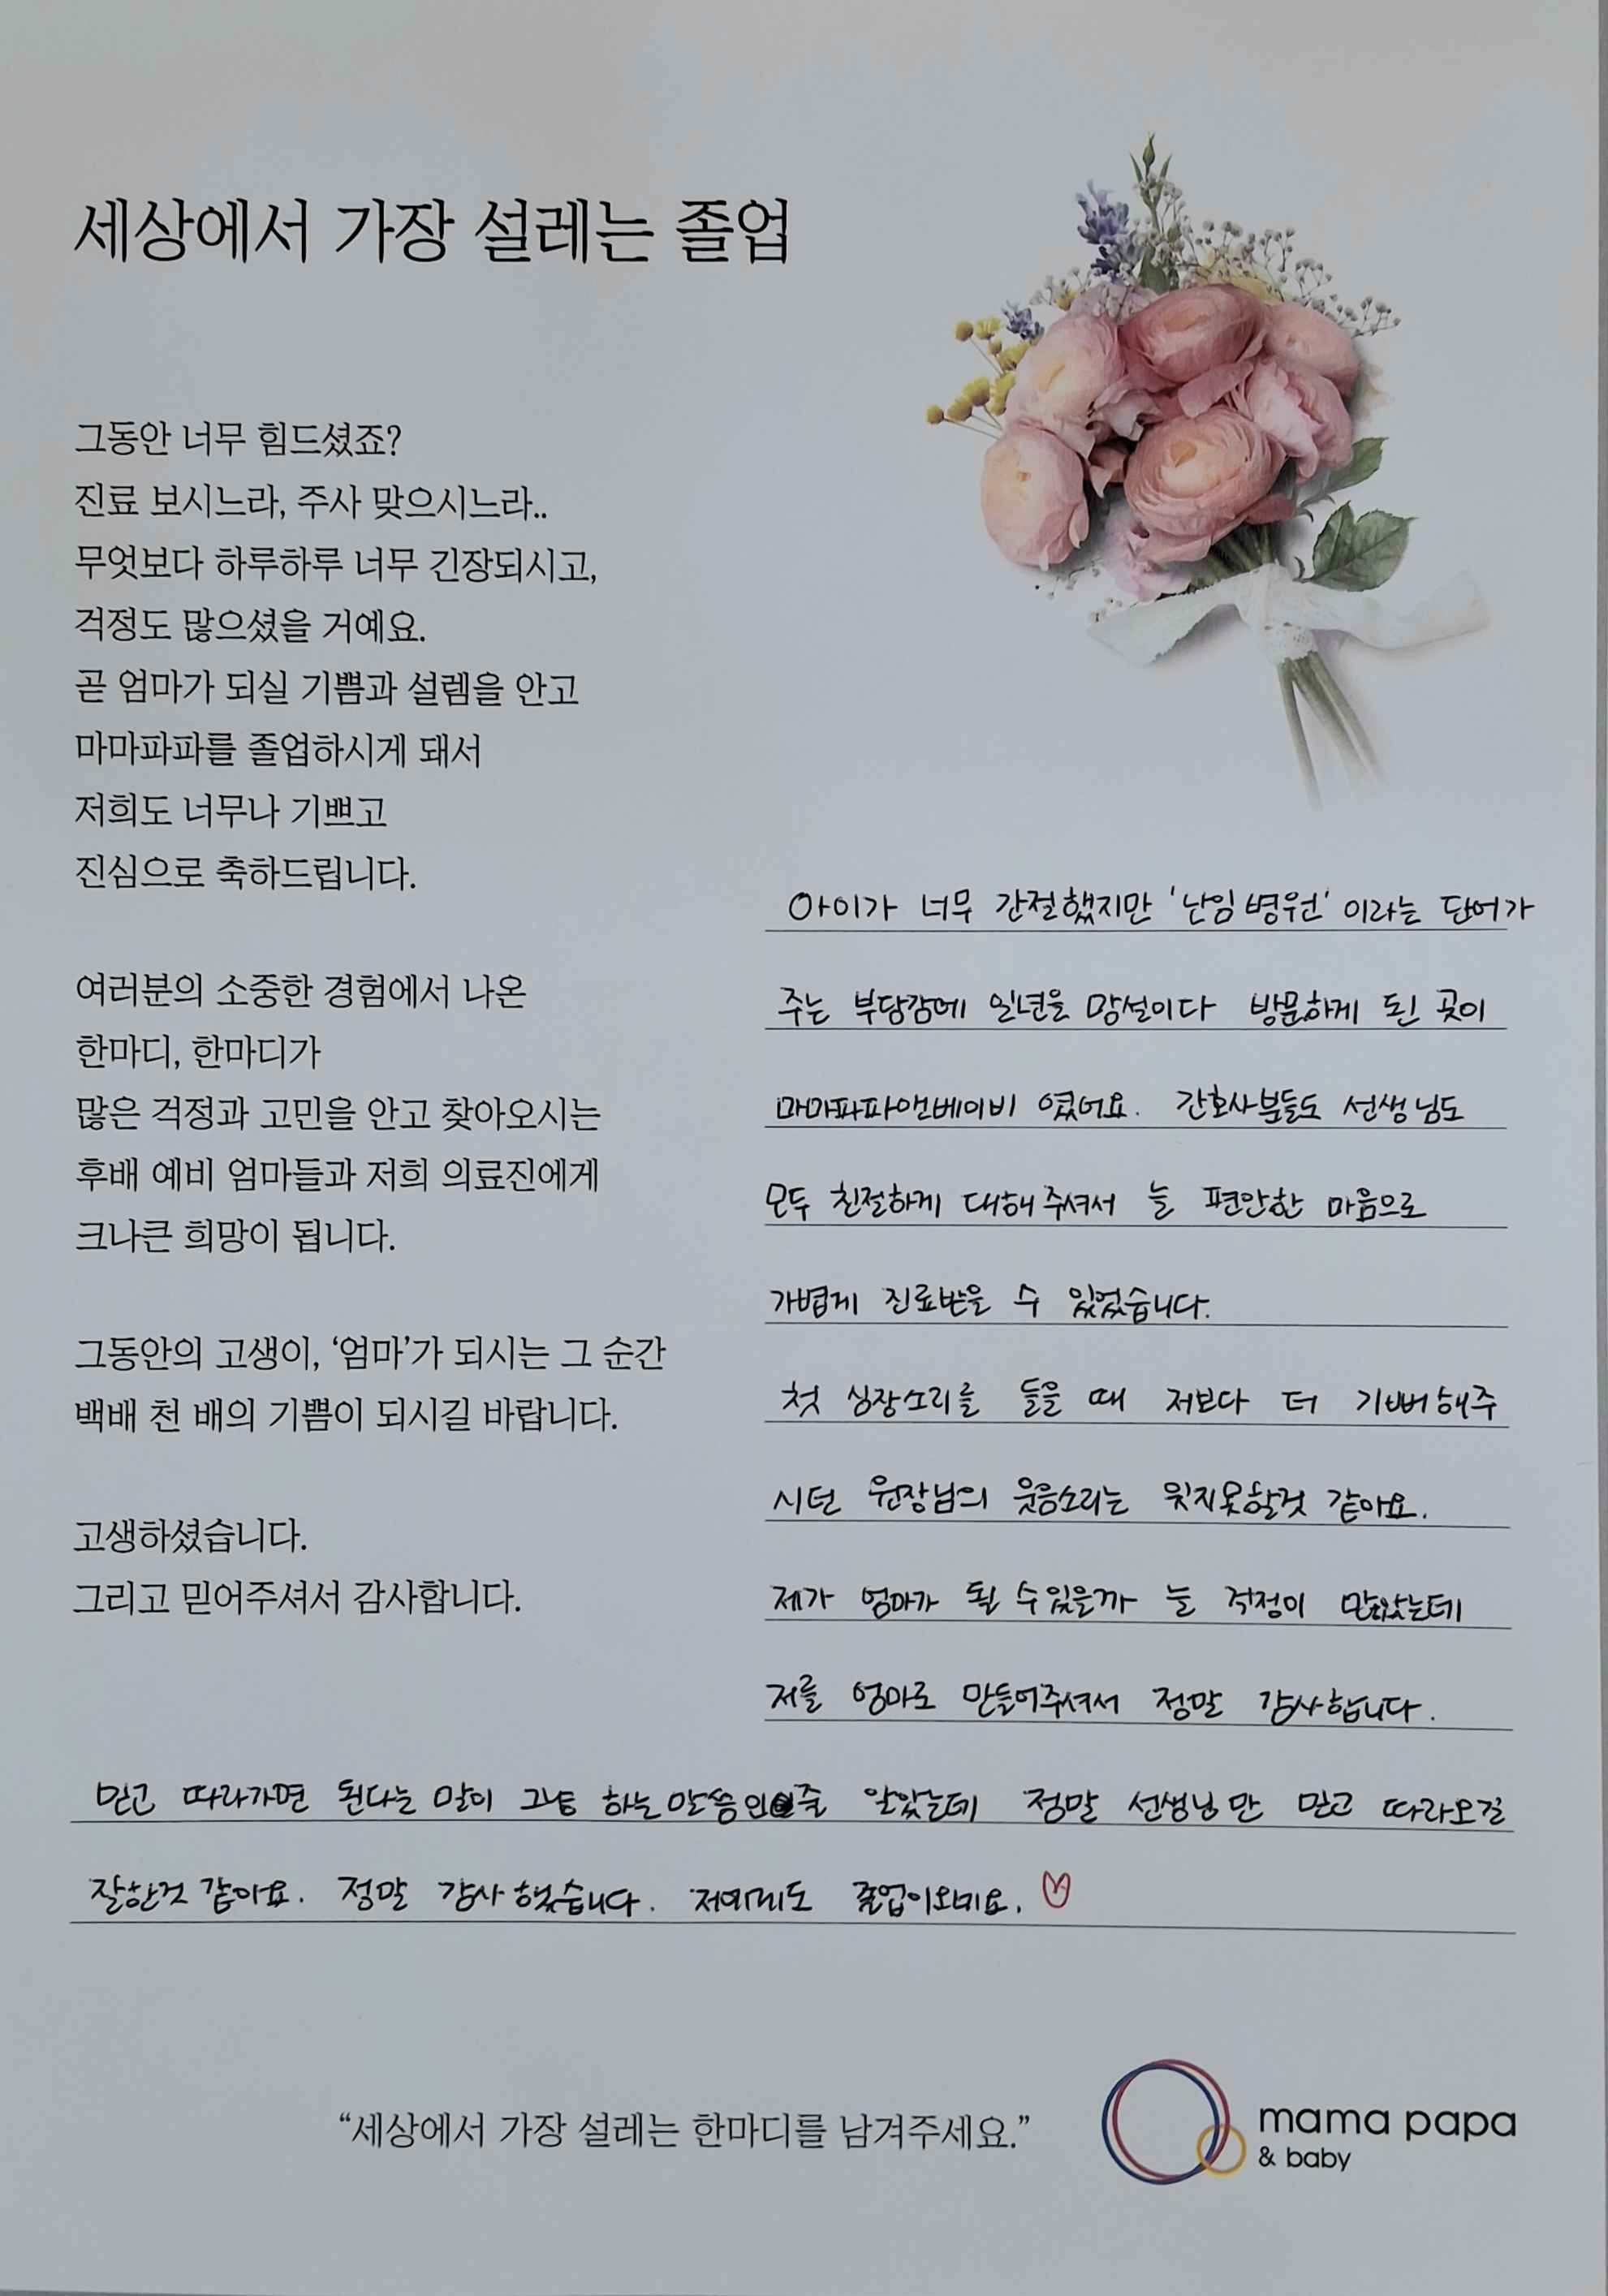 세상에서 가장 설레는 졸업
그동안 너무 힘드셨죠?
진료 보시느라, 주사 맞으시느라..
무엇보다 하루하루 너무 긴장되시고,
걱정도 많으셨을 거예요.
곧 엄마가 되실 기쁨과 설렘을 안고
마마파파를 졸업하시게 돼서
저희도 너무나 기쁘고
진심으로 축하드립니다.
여러분의 소중한 경험에서 나온
한마디, 한마디가
많은 걱정과 고민을 안고 찾아오시는
후배 예비 엄마들과 저희 의료진에게
크나큰 희망이 됩니다.
그동안의 고생이, ‘엄마’가 되시는 그 순간
백배 천 배의 기쁨이 되시길 바랍니다.
고생하셨습니다.
그리고 믿어주셔서 감사합니다.
아이가 너무 간절했지만 '난임병원' 이라는 단어가
주는 부담감에 일년을 망설이다 방문하게 된 곳이
마마파파앤베이비 였어요. 간호사분들도 선생님도
모두 친절하게 대해주셔서 늘 편안한 마음으로
가볍게 진료받을 수 있었습니다.
첫 심장소리를 들을 때 저보다 더 기뻐해주
시던 원장님의 웃음소리는 잊지못할것 같아요.
제가 엄마가 될 수있을까 늘 걱정이 많았는데
저를 엄마로 만들어주셔서 정말 감사합니다.
믿고 따라가면 된다는 말이 그냥 하는 말씀인줄 알았는데 정말 선생님만 믿고 따라오길
잘한것 같아요. 정말 감사했습니다. 저에게도 졸업이오네요. ♡
“세상에서 가장 설레는 한마디를 남겨주세요.”
mama papa
& baby